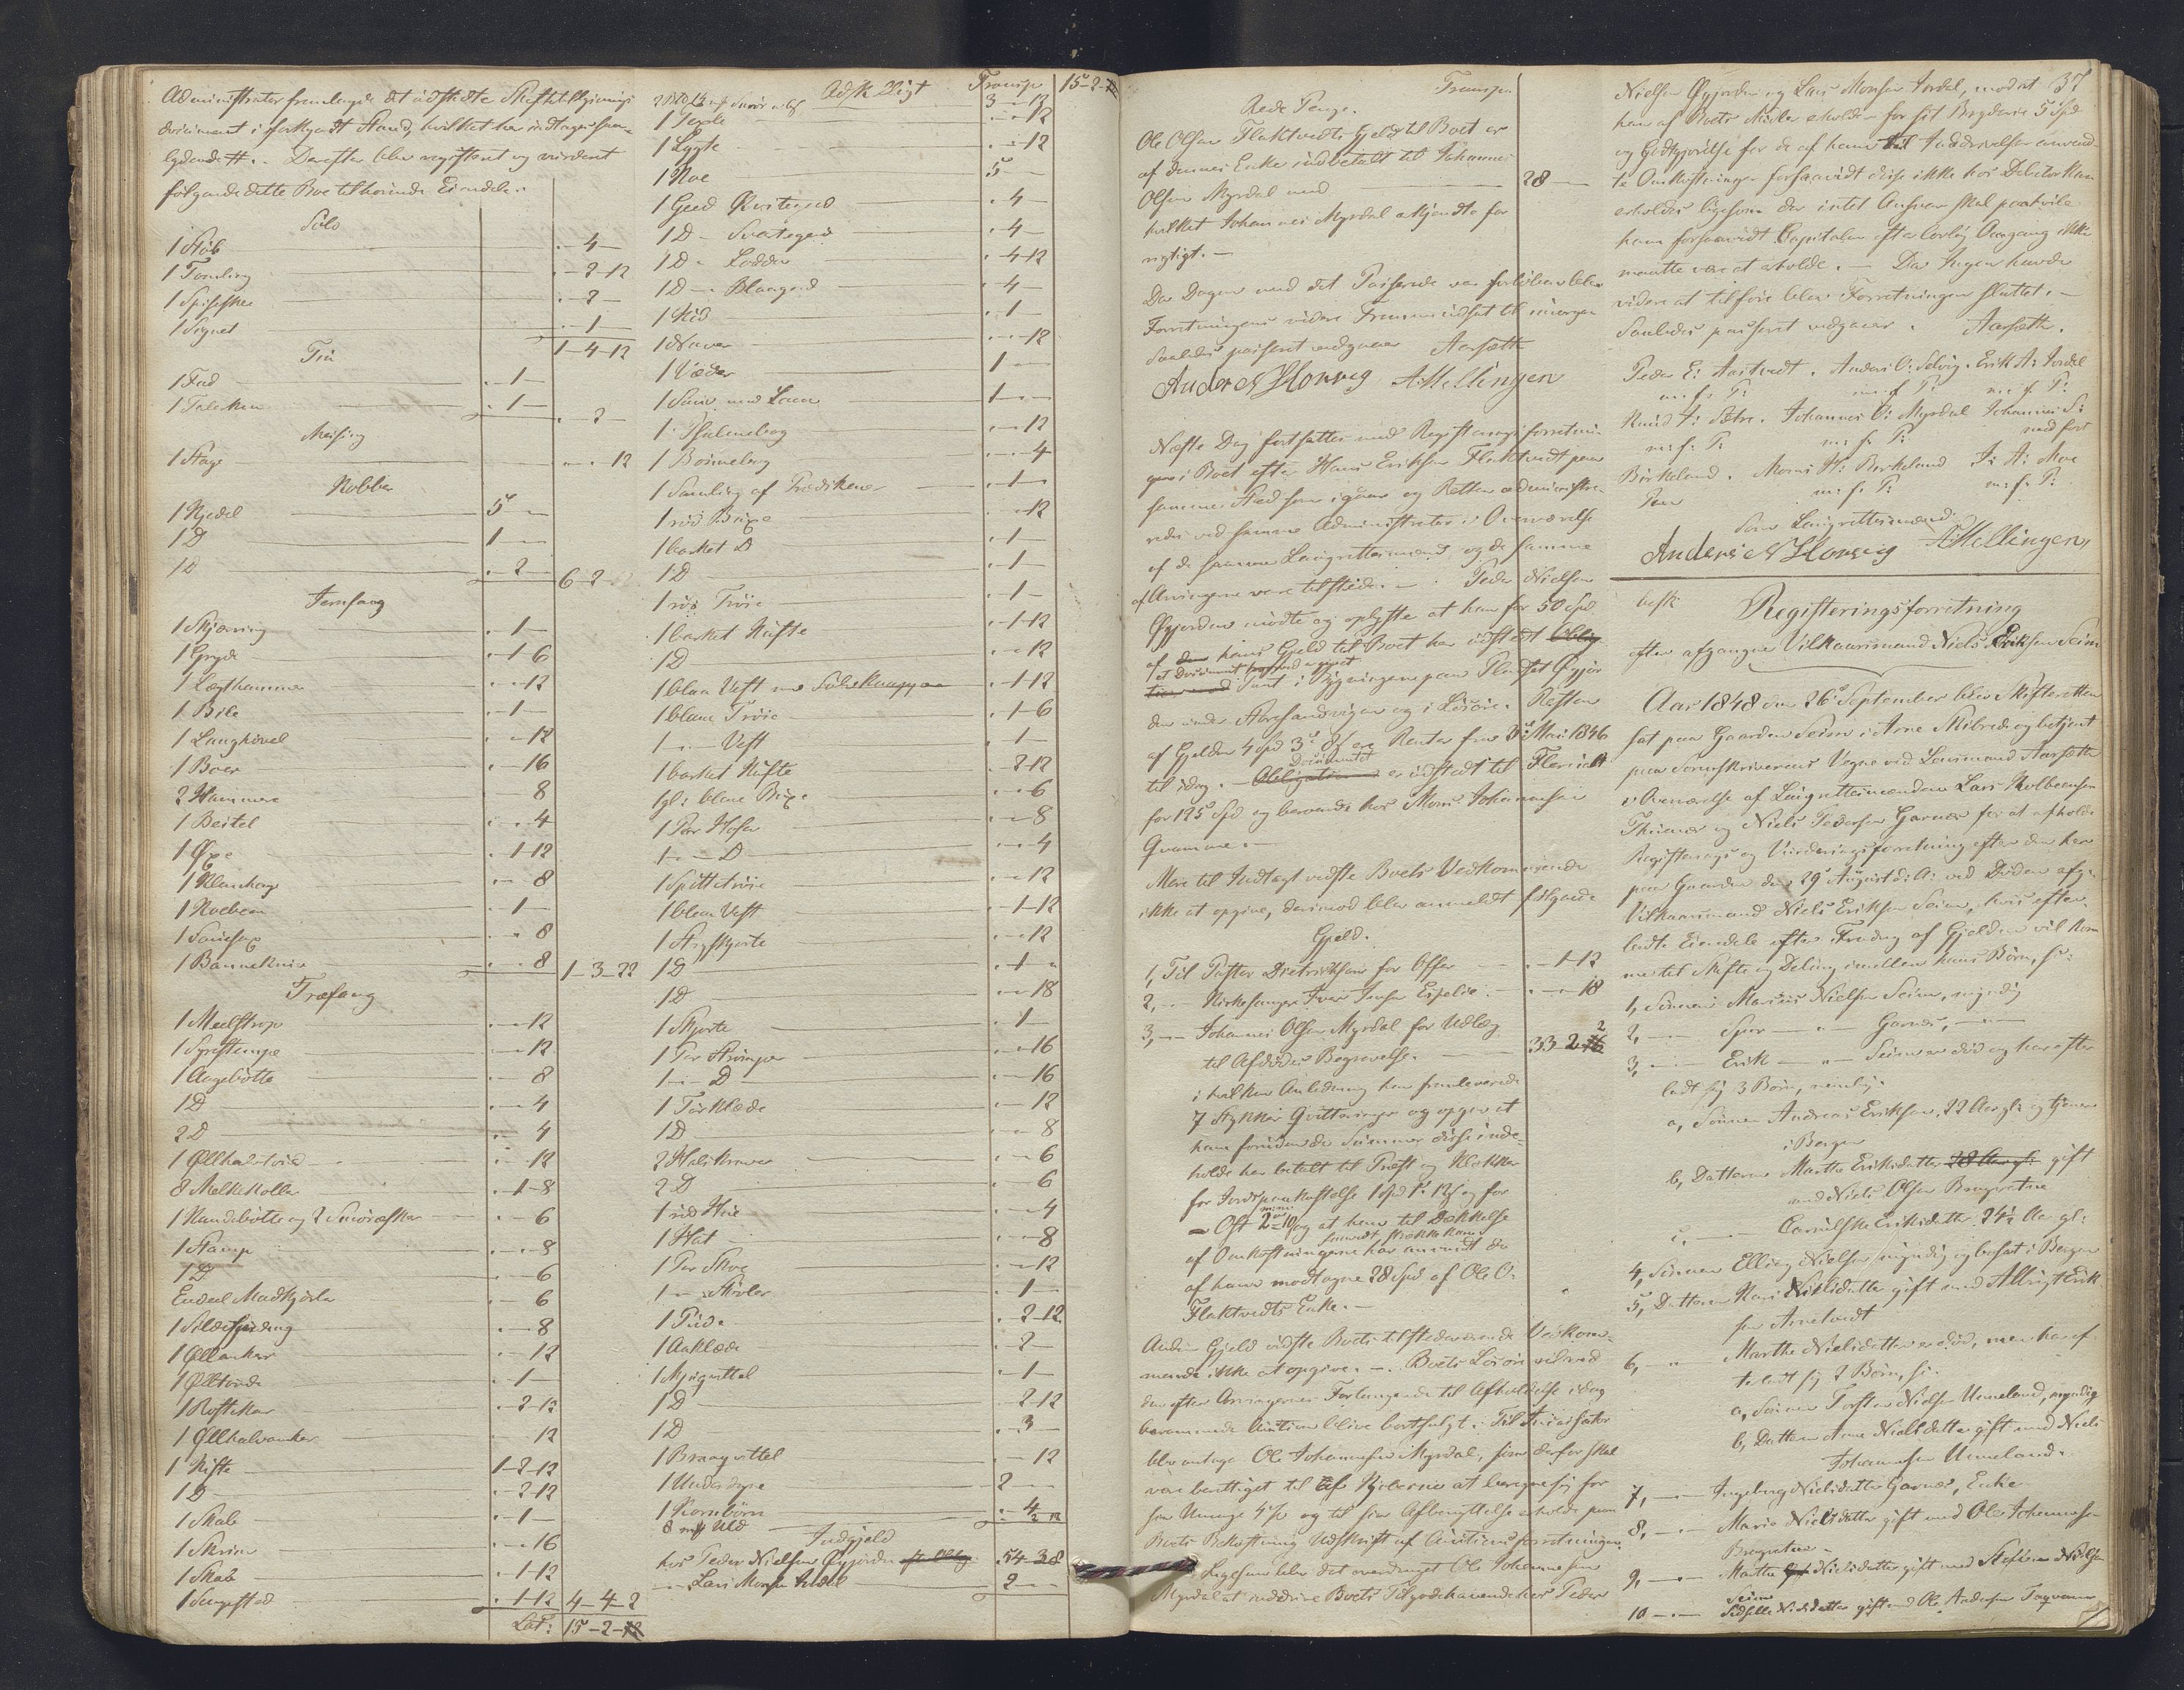 Administrator fremlagde det udstædte Skiftetilsigelses
document i forkyndt Stand, hvilket her indtages saa-
lydende #. Derefter blev registeret og vurderet
følgende dette Boe tilhørende Eiendele:
Sølv
1 Støb .-4-
1 Tomling .-2-12
1 Spiseskee .-2-
1 Signet .-1-
1-4-12
Tin
1 Fad .-1-
1 Talerken .-1-
.-2-
Messing
1 Stage .-.-12
Kobber
1 Kjedel 5-
1 D 1-
1 D .-2-
6-2-
Jernfang
1 Skjæring .-1-
1 Gryde .-1-6
1 Lægthammer .-.-12
1 Bile .-1-
1 Langhøvel .-.-12
1 Boer .-.-16
2 Hammere .-.-8
1 Beitel .-.-4
1 Øxe .-1-12
1 .-.-8
1 .-1-
1 Sauesax .-.-8
1 Bannekniv .-.-8
1-3-22
Træfang
1 .-.-12
1 .-.-12
1 .-.-8
1 D .-.-4
2 D .-.-4
1 .-.-12
8 Melkekoller .-1-8
1 Randebøtte og 2 Smøræsker .-.-6
1 Stamp .-.-8
1 D .-.-6
Endeel Madkjørler .-.-6
1 .-.-8
1 Øllanker .-.-12
1 Ølltønde .-1-
1 Rostekar .-2-12
1 Øllhalvanker .-.-12
1 Kiste 1-2-12
1 D .-2-12
1 Skab .-1-
1 Skrin .-.-16
1 Skab .-1-12
1 Sengested .-1-12
4-4-2
Lat: 15-2-
Adskilligt Transp 15-2-
1 .-.-12
1 Lygte .-.-12
1 Koe 5-
1 Geed .-4-
1 D - Svartegeed .-4-
1 D - .-4-12
1 D - Blaageed .-4-
1 Kid .-1-
1 Naver .-.-12
1 Væder 1-
1 Saue med Lam 1-
1 Psalmebog .-.-12
1 Bønnebog .-.-4
1 Samling af Prædikener .-1-
1 rød Buxe .-.-12
1 barket D .-1-
1 D .-1-
1 rød Trøie .-1-
1 barket Kufte .-1-12
1 D .-.-12
1 blaa Vest med Sølvknapper .-1-12
1 blaae Trøie .-1-6
1 -"- Vest .-1-
1 barket Kufte .-2-12
1 gl: blaae Buxe .-.-6
1 Par Hoser .-.-8
1 -"- D .-.-4
1 Spøttetrøie .-.-12
1 blaa Vest .-1-12
1 Strieskjorte .-.-12
1 D .-1-
1 D .-.-18
1 Skjorte .-1-
1 Par Strømper .-.-16
1 -"- D .-.-16
1 Tørklæde .-.-12
1 D .-.-8
2 .-.-6
2 D .-.-6
1 rød Hue .-.-4
1 Hat .-.-8
1 Par Skoe .-.-12
1 -"- Støvler .-1-
1 Pude .-2-12
1 Aaklæde .-2-
1 .-1-
1 D .-2-12
1 D .-3-
1 .-.-12
1 Underdyne 2-
1 Kornbørn .-4-
8 mk Uld .-2-12
Indgjeld
hos Peder Nielsen Øyjorden 54-3-8
-"- Lars Monsen Aardal 2-
Transp.
Rede Penge.
Ole Olsen Flaktvedts Gjeld til Boet er
af dennes Enke indbetalt til Johannes
Olsen Myrdal med 28-
hvilket Johannes Myrdal erkjendte for
rigtigt.-
Da Dagen med det Passerede var forløben blev
Forretningens videre Fremme udsat til imorgen
Saaledes passeret vedgaaer Aarsæth
Anders N Honsvig A: Mellingen
Næste Dag fortsattes med Registeringsforretnin-
gen i Boet efter Hans Eriksen Flaktvedt paa
samme Sted som igaar og Retten administre-
redes ved samme Administrator i Overværelse
af de samme Laugrettesmænd, og de samme
af Arvingerne vare tilstede.- Peder Nielsen
Øyjorden mødte og oplyste at han for 50 Spd
af hans Gjeld til Boet har udstedt
et Document
Pant i Bygningerne paa Pladset Øyjor
den under og i Løsøre. Resten
af Gjelden 4 Spd 3 er Renter fra Mai 1846
til idag.- Documentet er udstedt til Flere
for 125 Spd og beroende hos Mons Johannesen
Gramme.-
Mere til Indtægt vidste Boets Vedkommende
ikke at opgive, derimod blev anmeldt følgende
Gjeld.
1, Til Pastor Dietrichson for Offer .-1-12
2, -"- Kirkesanger Iver Espelid .-.-18
3, -"- Johannes Olsen Myrdal for Udlæg
til Afdødes Begravelse. 33-2-
i hvilken Anledning han fremleverede
7 Stykker Qvitteringer og opgav at
han foruden de Summer disse inde-
holde har betalt til Præst og Klokker
for Jordspaakastelse 1 Spd og for
Ost og at han til Dækkelse
af Omkostningerne har anvendt de
af ham modtagne 28 Spd af Ole O.
Flaktvedts Enke.-
Anden Gjeld vidste Boets tilstedeværende Vedkom-
mende ikke at opgive.- Boets Løsøre vil
efter Arvingernes Forlangende til Afholdelse idag
berammede Auction blive bortsolgt. Til Incassator
blev antage Ole Johannesen Myrdal, som derfor skal
være berettiget til af Kjøberne at beregne sig for
sin Umage 4% og til sin Afbenyttelse erholde paa
Boets Bekostning Udskrift af Auctionsforretningen.
Ligesom blev det overdraget Ole Johannesen
Myrdal at inddrive Boets Tilgodehavende hos Peder
37
Nielsen Øyjorden og Lars Monsen Aardal, imod at
han af Boets Midler erholder for sit Bryderie 5 Spd
og Godtgjørelse for de af ham til Inddrivelsen anvend
te Omkostninger forsaavidt disse ikke hos Debitor kan
erholdes ligesom der intet Ansvar skal paahvile
ham forsaavidt Capitalen efter lovlig Omgang ikke
maatte være at erholde.- Da Ingen havde
videre at tilføie blev Forretningen sluttet.-
Saaledes passeret vedgaaer. Aarsæth.
Peder E: Aastvedt. Anders O: Selvig. Erik A: Aardal
m. f. P: m. f. P: m. f. P:
Knud J: Sætre. Johannes O: Myrdal Johannes S:
m. f. P: m. f. P: med fort
Birkeland. Mons H: Birkeland J: A: Moe
Pen m: f. P: m: f. P:
Som Laugrettesmænd:
Anders N Honsvig A: Mellingen
besk Registeringsforretning
efter afgangne Vilkaarsmand Niels Eriksen Seim
Aar 1848 den 26de September blev Skifteretten
sat paa Gaarden Seim i Arne Skibrede og betjent
paa Sorenskriverens Vegne ved Lensmand Aarsæth
i Overværelse af Laugrettesmændene Lars Kolbeensen
Thunæs og Niels Pedersen Garnæs for at afholde
Registerings og Vurderingsforretning efter den her
paa Gaarden den 29 August d: A: ved Døden afg:
Vilkaarsmand Niels Eriksen Seim, hvis efter-
ladte Eiendele efter Fradrag af Gjelden vil kom
me til Skifte og Deling imellem hans Børn, s:
1, Sønnen Marius Nielsen Seim, myndig
2, -"- -"- Garnæs, -"-
3, -"- Erik -"- Seim er død og har efter
ladt sig 3 Børn, nemlig:
a, Sønnen Andreas Eriksen, 22 Aar gl: og tjener
i Bergen
b, Datteren Marthe Eriksdatter gift
med Niels Olsen Brugvatne
c, -"- Eriksdatter 24½ Aar gl:
4, Sønnen Elling Nielsen myndig og bosat i Bergen
5, Datteren Kari Nielsdatter gift med Albrigt Erik
sen Arnetvedt
6, -"- Marthe Nielsdatter er død, men har ef
terladt sig 2 Børn, s:
a, Sønnen Torsten Nielsen Unneland, myndig
b, Datteren Anna Nielsdatter gift med Niels
Johannesen Unneland.
7, -"- Ingeborg Nielsdatter Garnæs, Enke
8, -"- Marie Nielsdatter gift med Ole Johannesen
Brugvatne.
9, -"- Marthe Nielsdatter gift med Steffen Nielsen
Seim
10 -"- Nielsdatter gift med Ole Andersen